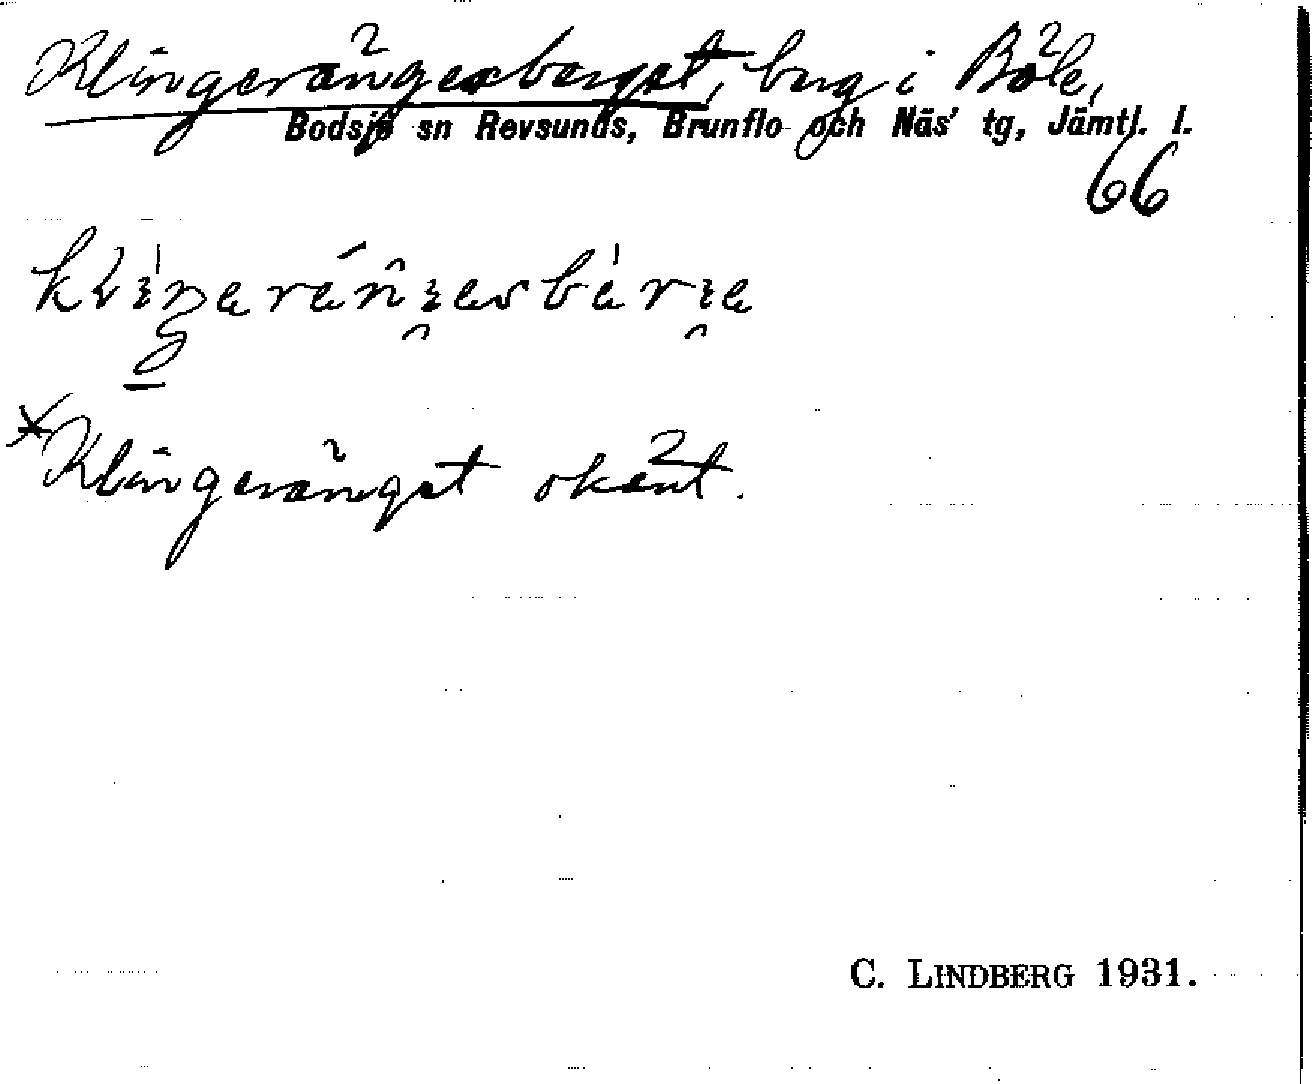 Klingerängesberget, berg i Böle,
Bodsjö sn Revsunds, Brunflo och Näs' tg, Jämtl. l.
66
*Klingeränget okänt.
C. LINDBERG 1931.